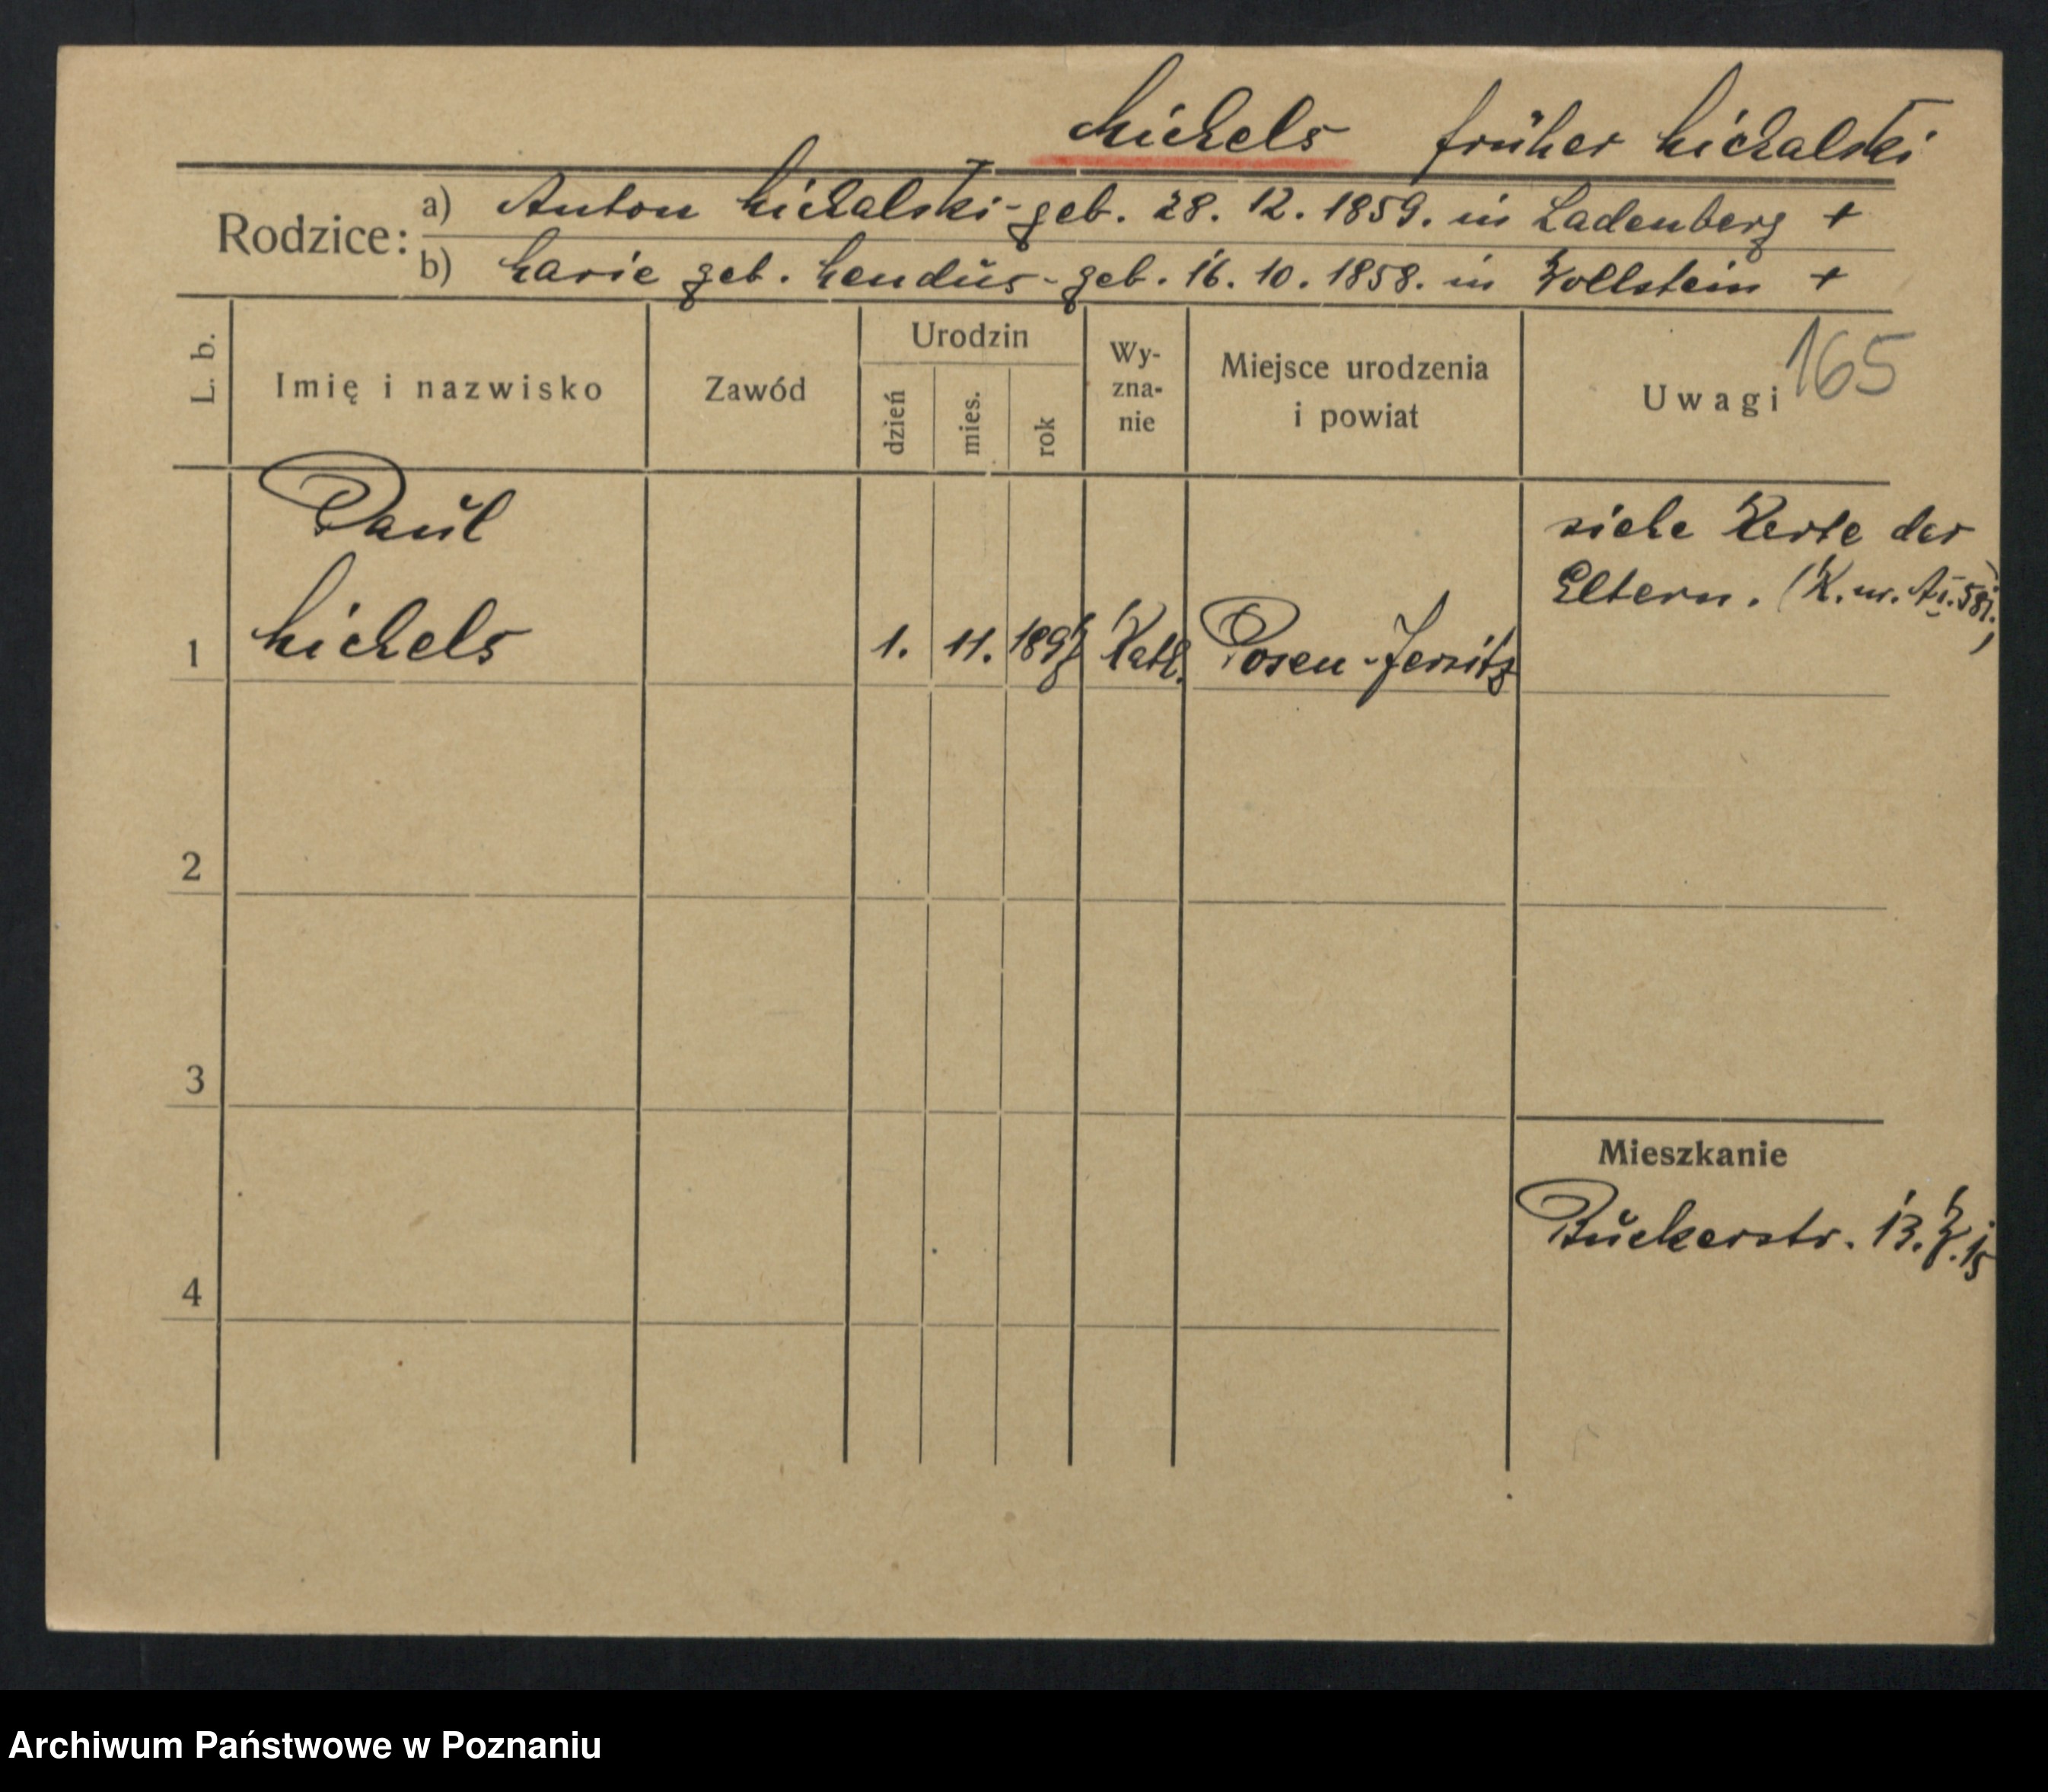 Michels früher Michalski
Rodzice: a) Anton Michalski - geb. 28. 12. 1859. in Ladenberg +
b) Marie geb. Mendüs - geb. 16. 10. 1858. in Wollstein +
L. b.
Imię i nazwisko
Zawód
Urodzin
dzień
mies.
rok
Wy-
zna-
nie
Miejsce urodzenia
i powiat
Uwagi
165
Paul
Michels
1
1. 11. 1897 Kath. Posen-Jersitz
siehe Karte der
Eltern.
2
3
4
Mieszkanie
Bukerstr. 13. W. 15
Archiwum Państwowe w Poznaniu